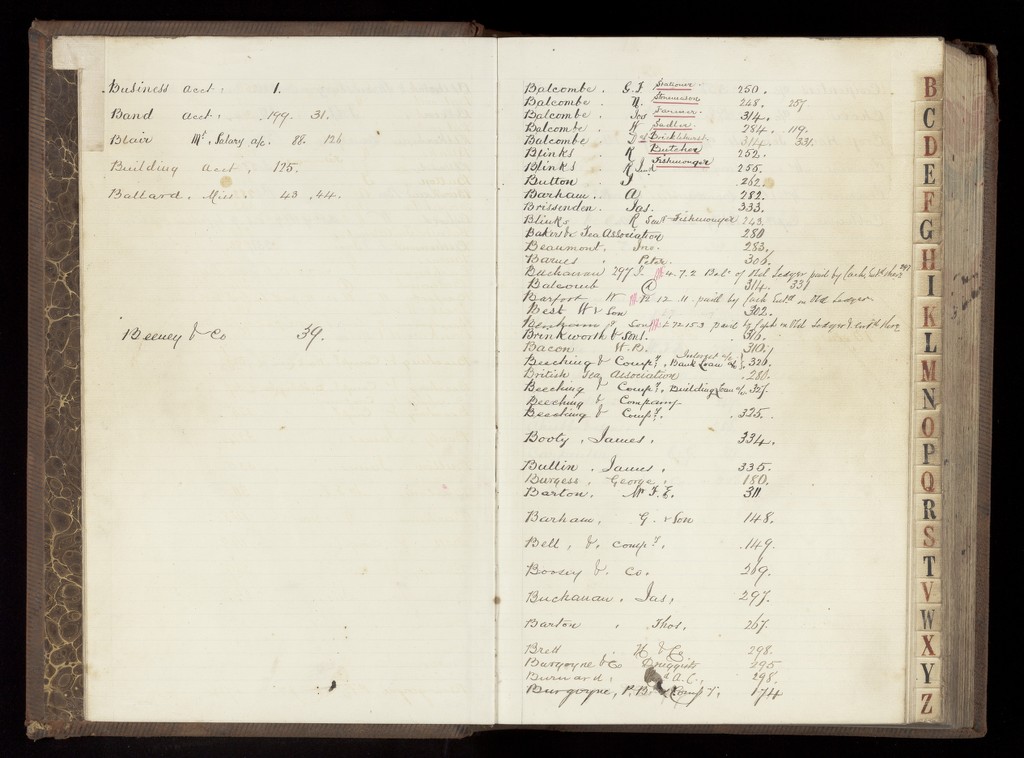 Business acct. 1.
Band acct. 199. 31.
Blair Mr. Salary a/c. 88. 126
Building acct. 125.
Ballard. Miss. 43. 44.
Beeney & Co 39.
Balcombe. G.F Stationer. 250.
Balcombe. H. Stonemason 248. 257
Balcombe. Jos Farmer. 314.
Balcombe. H Sadler. 284. 119.
Balcombe 314. 331.
Blinks R Butcher 252.
Blinks R Jnr Fishmonger 255.
Button J 262.
Barham. A 282.
Brissenden. Jas. 333.
Blinks R Senr Fishmonger 243.
Bakers & Tea Association 280
Beaumont. Jno. 283.
Barnes. Peter. 306.
Buchanan 297 J. 4.7.2 Bal. of Old Ledger paid by Cash, 297
Balcomb 314. 331
Barfoot W 12. 11 paid by Cash in Old Ledger
Best W & Son 302.
& Sons £72.15.3 paid by Cash in Old Ledger
Brinkworth & Sons. 316.
Bacon W.B. 310.
Beeching & Compy. Interest a/c Bank Loan a/c 326.
British Tea Association 280.
Beeching & Compy. Building Loan a/c. 327.
Beeching & Company
Beeching & Compy. 325.
Booty, James. 334.
Bullin. James. 335.
Burgess, George. 180.
Barton. Mr F. E. 311
Barham. G. & Son 148.
Bell, & Compy. 149.
Boosey & Co. 269.
Buchanan. Jas. 297.
Barton. Thos. 267
Brett H & Co 298.
Burgoyne & Co Druggists 295
Burnard. A.C. 298.
Burgoyne, Compy. 174
B
C
D
E
F
G
H
I
K
L
M
N
O
P
Q
R
S
T
V
W
X
Y
Z